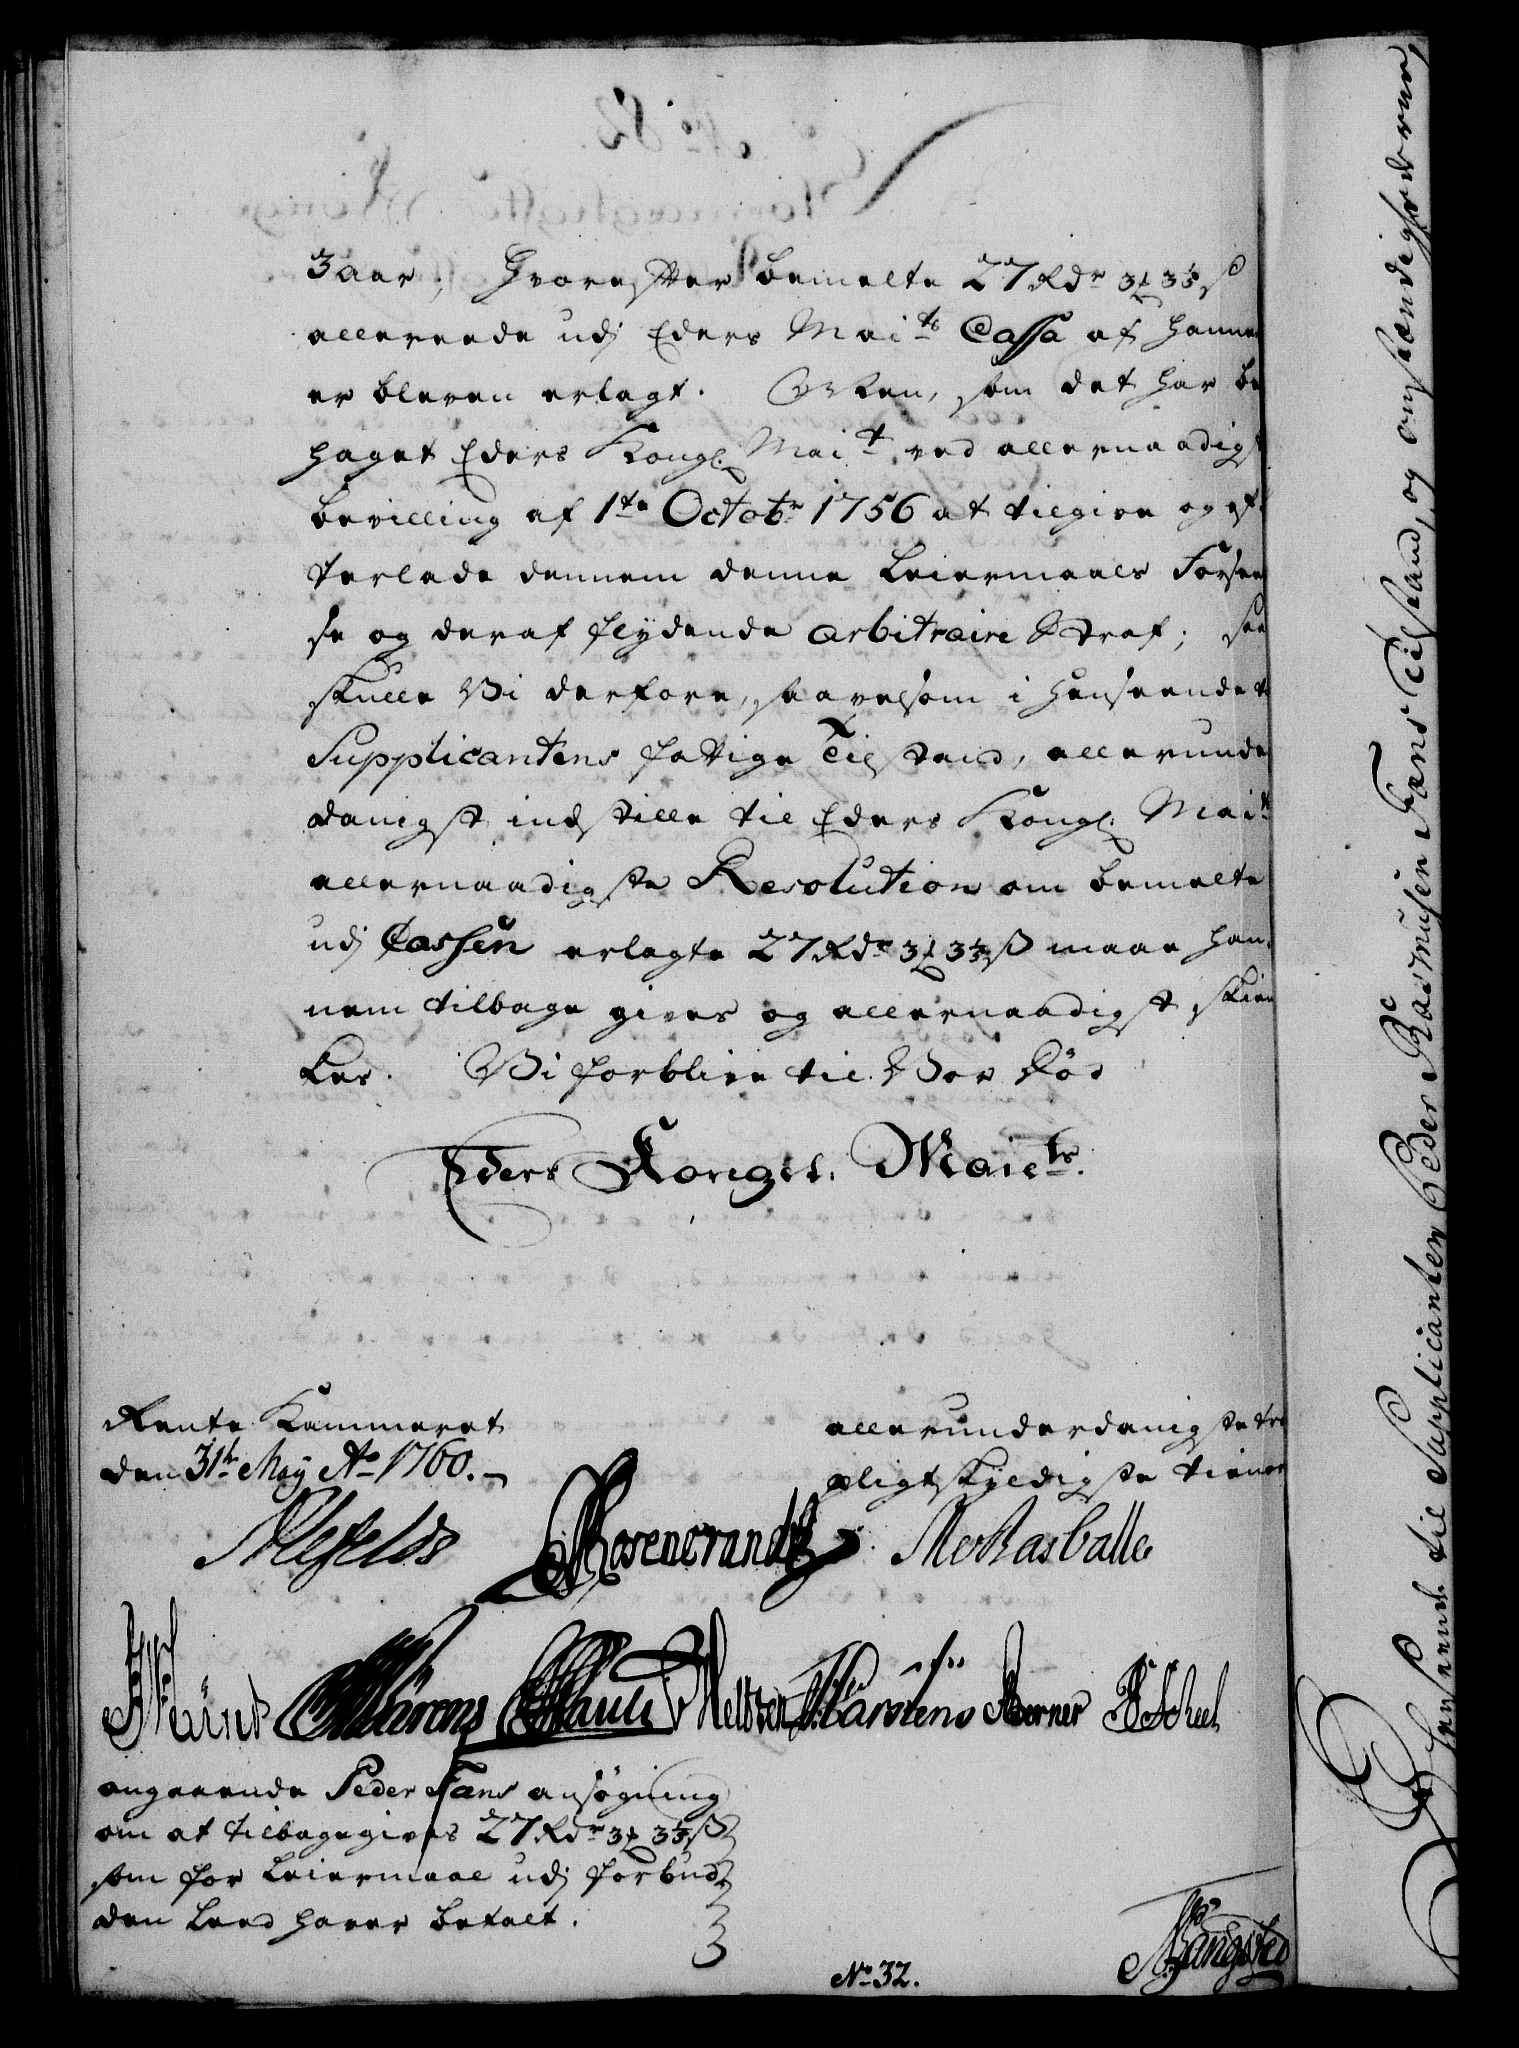 3 aar; hvorefter bemelte 27 Rdr 3 ₰ 3⅕ ß
allereede udj Eders Maits Cassa af hannem
er bleven erlagt. Men, som det har be
haget Eders Kongl. Mait ved allernaadigst
bevilling af 1te Octobr 1756 at tilgive og ef-
terlade dennem denne Leiermaals Forseel
se og deraf flydende arbitraire Straf; saa
skulle Vi derfore, saavelsom i henseende til
Supplicantens fattige Tilstand, allerunder
danigst indstille til Eders Kongl. Maits
allernaadigste Resolution om bemelte
udj Cassen erlagte 27 Rdr 3 ₰ 3⅕ ß maae han-
nem tilbage gives og allernaadigst skien
kes. Vi forblive til Vor Død
Eders Kongel. Maiets.
Rente Kammeret
den 31te May Ao 1760.
allerunderdanigste tro
pligtskyldigste tienere
Alefeldt Rosencrandtz
angaaende Peder Fæns ansøgning
om at tilbagegives 27 Rdr 3 ₰ 3⅕ ß
som for Leiermaal udj forbud-
den Leed haver betalt.
No 32.
henseende til Supplicanten Peder Rasmusen Fæns Tilstand, og omstændighederne,